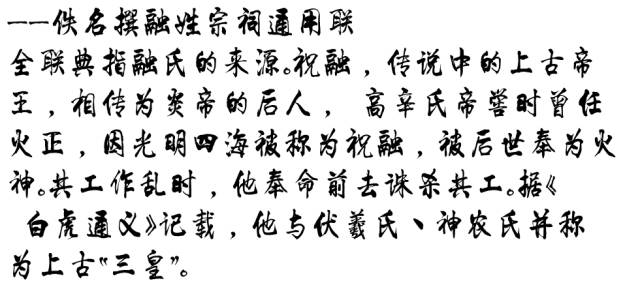 ——佚名撰融姓宗祠通用联
全联典指融氏的来源。祝融，传说中的上古帝
王，相传为炎帝的后人， 高辛氏帝喾时曾任
火正，因光明四海被称为祝融，被后世奉为火
神。共工作乱时，他奉命前去诛杀共工。据《
白虎通义》记载，他与伏羲氏、神农氏并称
为上古“三皇”。